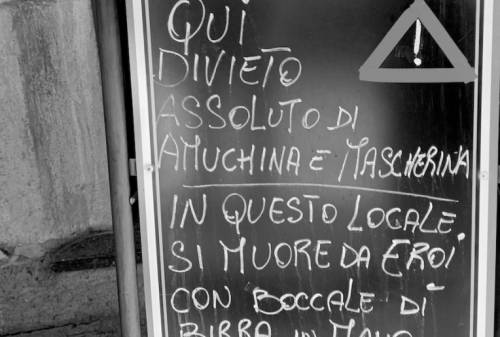 !
QUI
DIVIETO
ASSOLUTO DI
AMUCHINA E MASCHERINA
IN QUESTO LOCALE
SI MUORE DA EROI
CON BOCCALE DI
BIRRA IN MANO